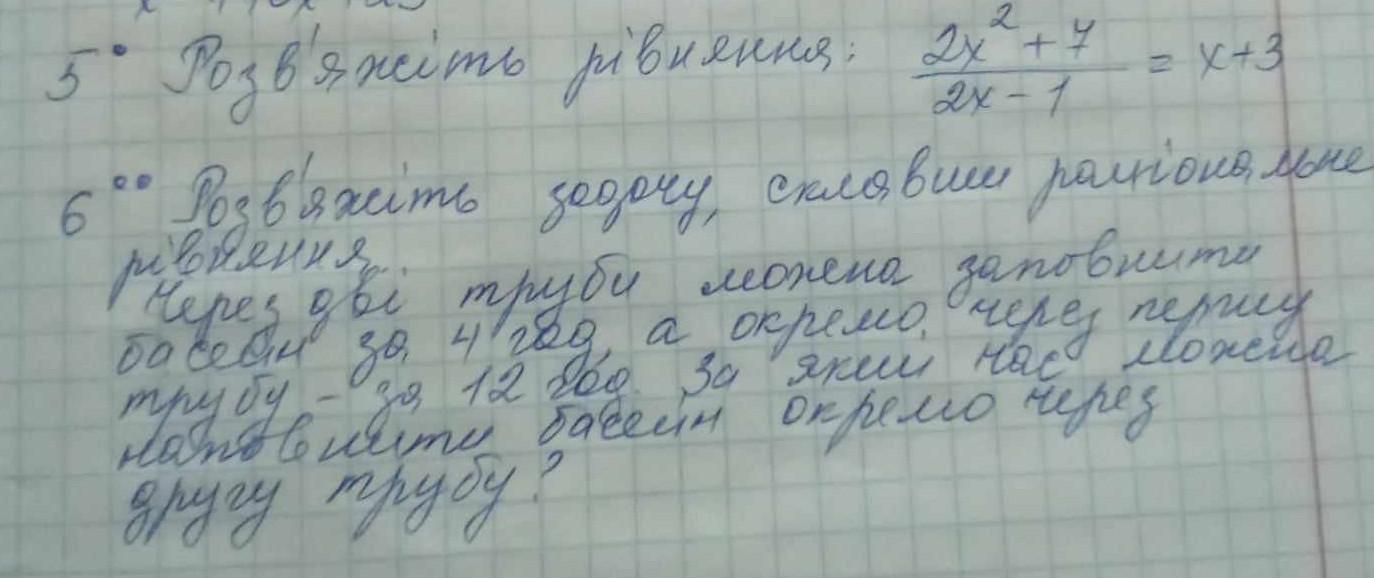 5° Розв'яжіть рівняння: (2x² + 7)/(2x - 1) = x+3
6°° Розв'яжіть задачу, склавши раціональне
рівняння.
Через дві труби можна заповнити
басейн за 4 год, а окремо через першу
трубу - за 12 год. За який час можна
наповнити басейн окремо через
другу трубу?